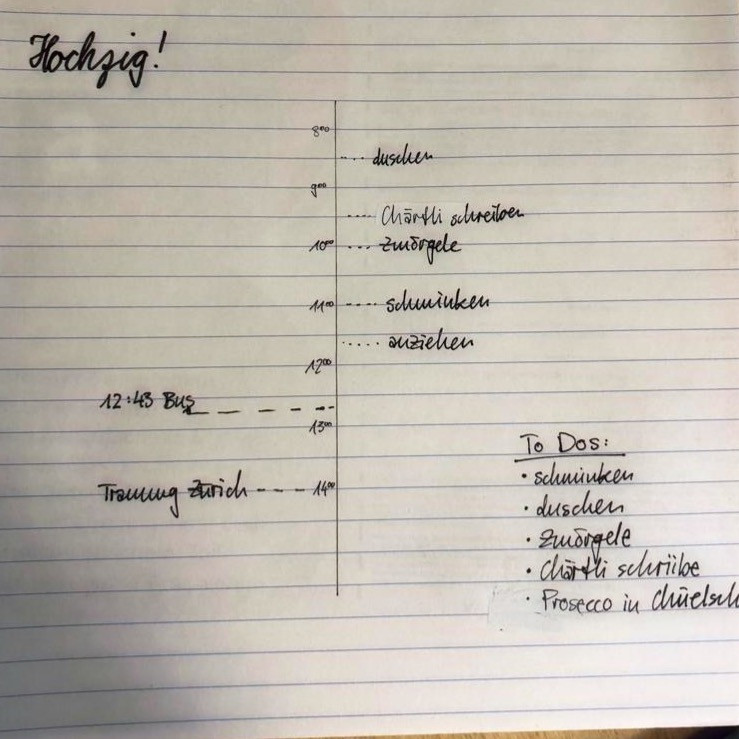 Hochzig!
8⁰⁰
duschen
9⁰⁰
Chärtli schreiben
10⁰⁰ Zmörgele
11⁰⁰ schminken
anziehen
12⁰⁰
12:43 Bus
13⁰⁰
Trauung Zürich 14⁰⁰
To Dos:
• schminken
• duschen
• Zmörgele
• Chärtli schriibe
• Prosecco in Chüelsch